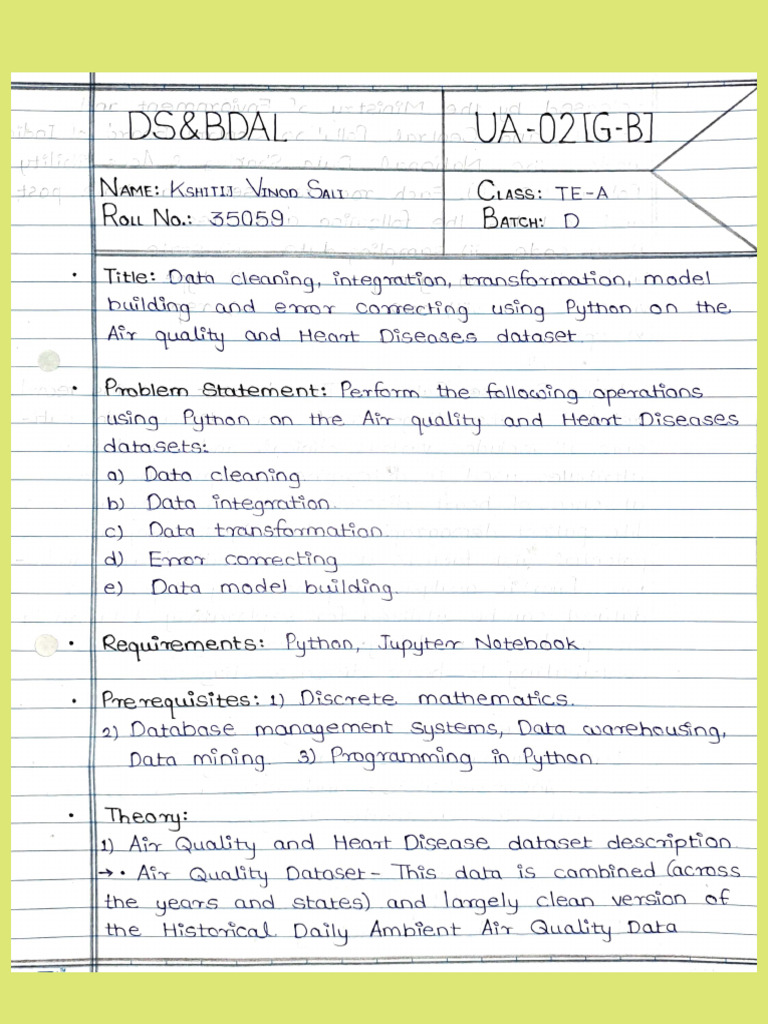 DS&BDAL
UA-02[G-B]
NAME: KSHITIJ VINOD SALI
ROLL NO.: 35059
CLASS: TE-A
BATCH: D
• Title: Data cleaning, integration, transformation, model
building and error correcting using Python on the
Air quality and Heart Diseases dataset.
• Problem Statement: Perform the following operations
using Python on the Air quality and Heart Diseases
datasets:
a) Data cleaning.
b) Data integration.
c) Data transformation.
d) Error correcting
e) Data model building.
• Requirements: Python, Jupyter Notebook.
• Prerequisites: 1) Discrete mathematics.
2) Database management systems, Data warehousing,
Data mining. 3) Programming in Python.
• Theory:
1) Air Quality and Heart Disease dataset description
→ • Air Quality Dataset - This data is combined (across
the years and states) and largely clean version of
the Historical Daily Ambient Air Quality Data